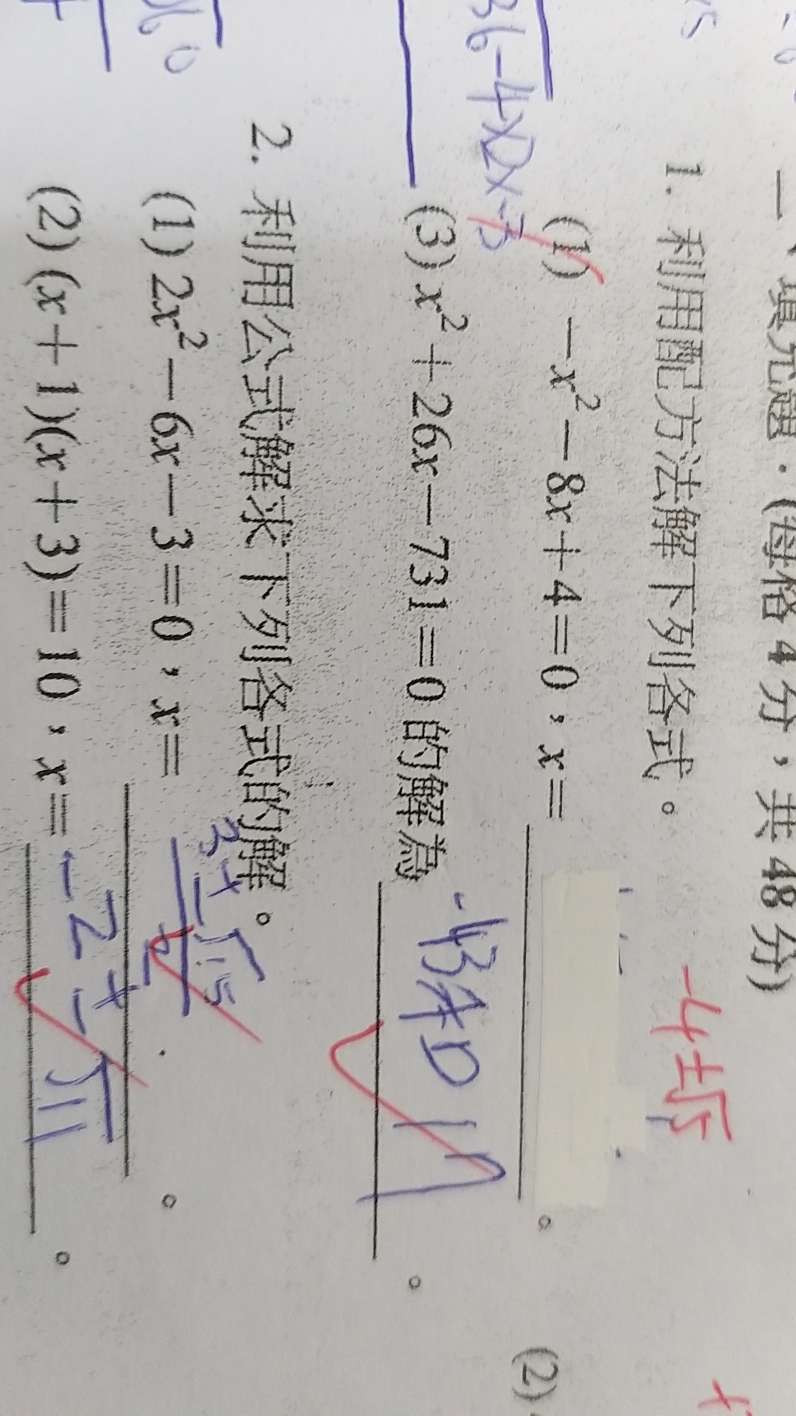 一、填充題．(每格4分，共48分)
1. 利用配方法解下列各式。
-4±√5
(1) －x²－8x＋4＝0，x＝ 。
(2)
36-4×2×-3
(3) x²＋26x－731＝0 的解為 -43和17 。
2. 利用公式解求下列各式的解。
(1) 2x²－6x－3＝0，x＝ 3±√15/2 。
(2) (x＋1)(x＋3)＝10，x＝ -2±√11 。